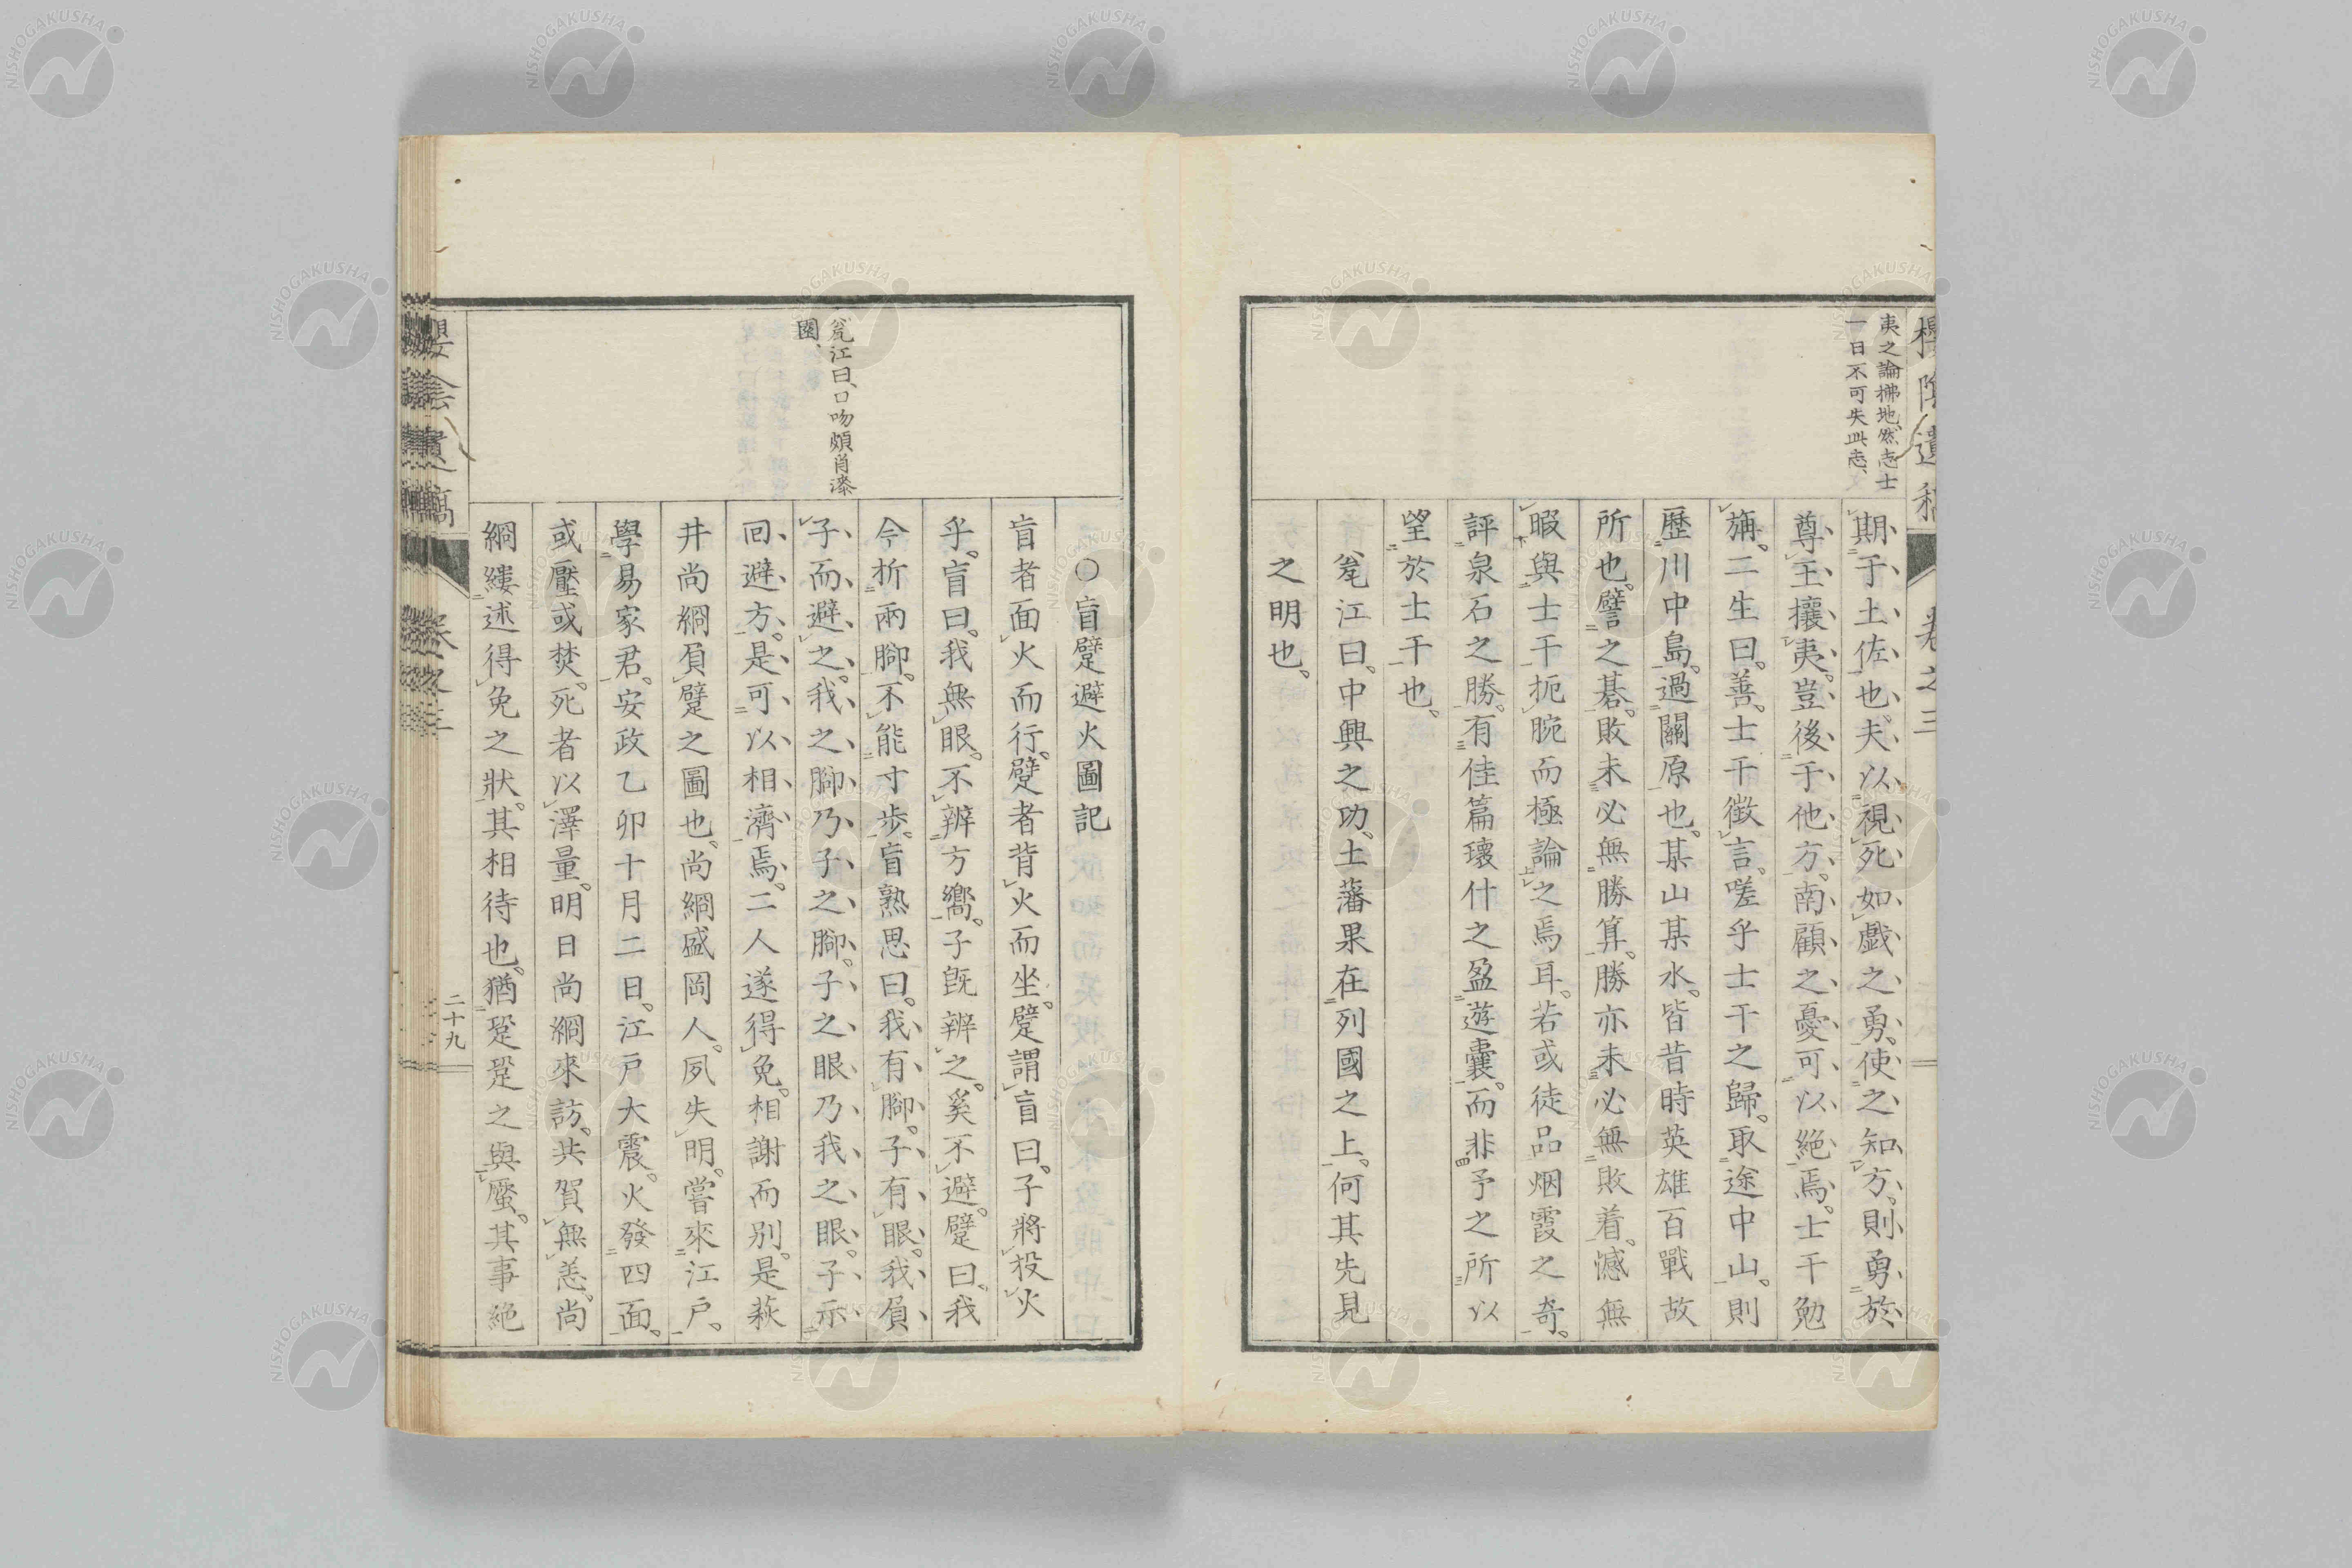 夷之論拂地、然志士
一日不可失此志、
期于土佐也。夫以視死如戲之勇。使之知方。則勇於
尊王攘夷。豈後于他方。南顧之憂可以絶焉。士干勉
旃。二生曰。善。士干徵言。嗟乎士干之歸。取途中山。則
歷川中島。過關原也。某山某水。皆昔時英雄百戰故
所也。譬之棊。敗未必無勝算。勝亦未必無敗着。憾無
暇與士干扼腕而極論之焉耳。若或徒品烟霞之奇。
評泉石之勝。有佳篇瓌什之盈遊囊。而非予之所以
望於士干也。
甕江曰。中興之功。土藩果在列國之上。何其先見
之明也。
櫻陰遺稿
卷之三
甕江曰、口吻頗肖漆
園、
○盲躄避火圖記
盲者面火而行。躄者背火而坐。躄謂盲曰。子將投火
乎。盲曰。我無眼。不辨方嚮。子旣辨之。奚不避。躄曰。我
今折兩腳。不能寸步。盲熟思曰。我有腳。子有眼。我負
子而避之。我之腳乃子之腳。子之眼乃我之眼。子示
回避方。是可以相濟焉。二人遂得免。相謝而別。是萩
井尚綱負躄之圖也。尚綱盛岡人。夙失明。嘗來江戶。
學易家君。安政乙卯十月二日。江戶大震。火發四面。
或壓或焚。死者以澤量。明日尚綱來訪。共賀無恙。尚
綱縷述得免之狀。其相待也。猶蛩蛩之與蟨。其事絶
櫻陰遺稿
卷之三
二十九